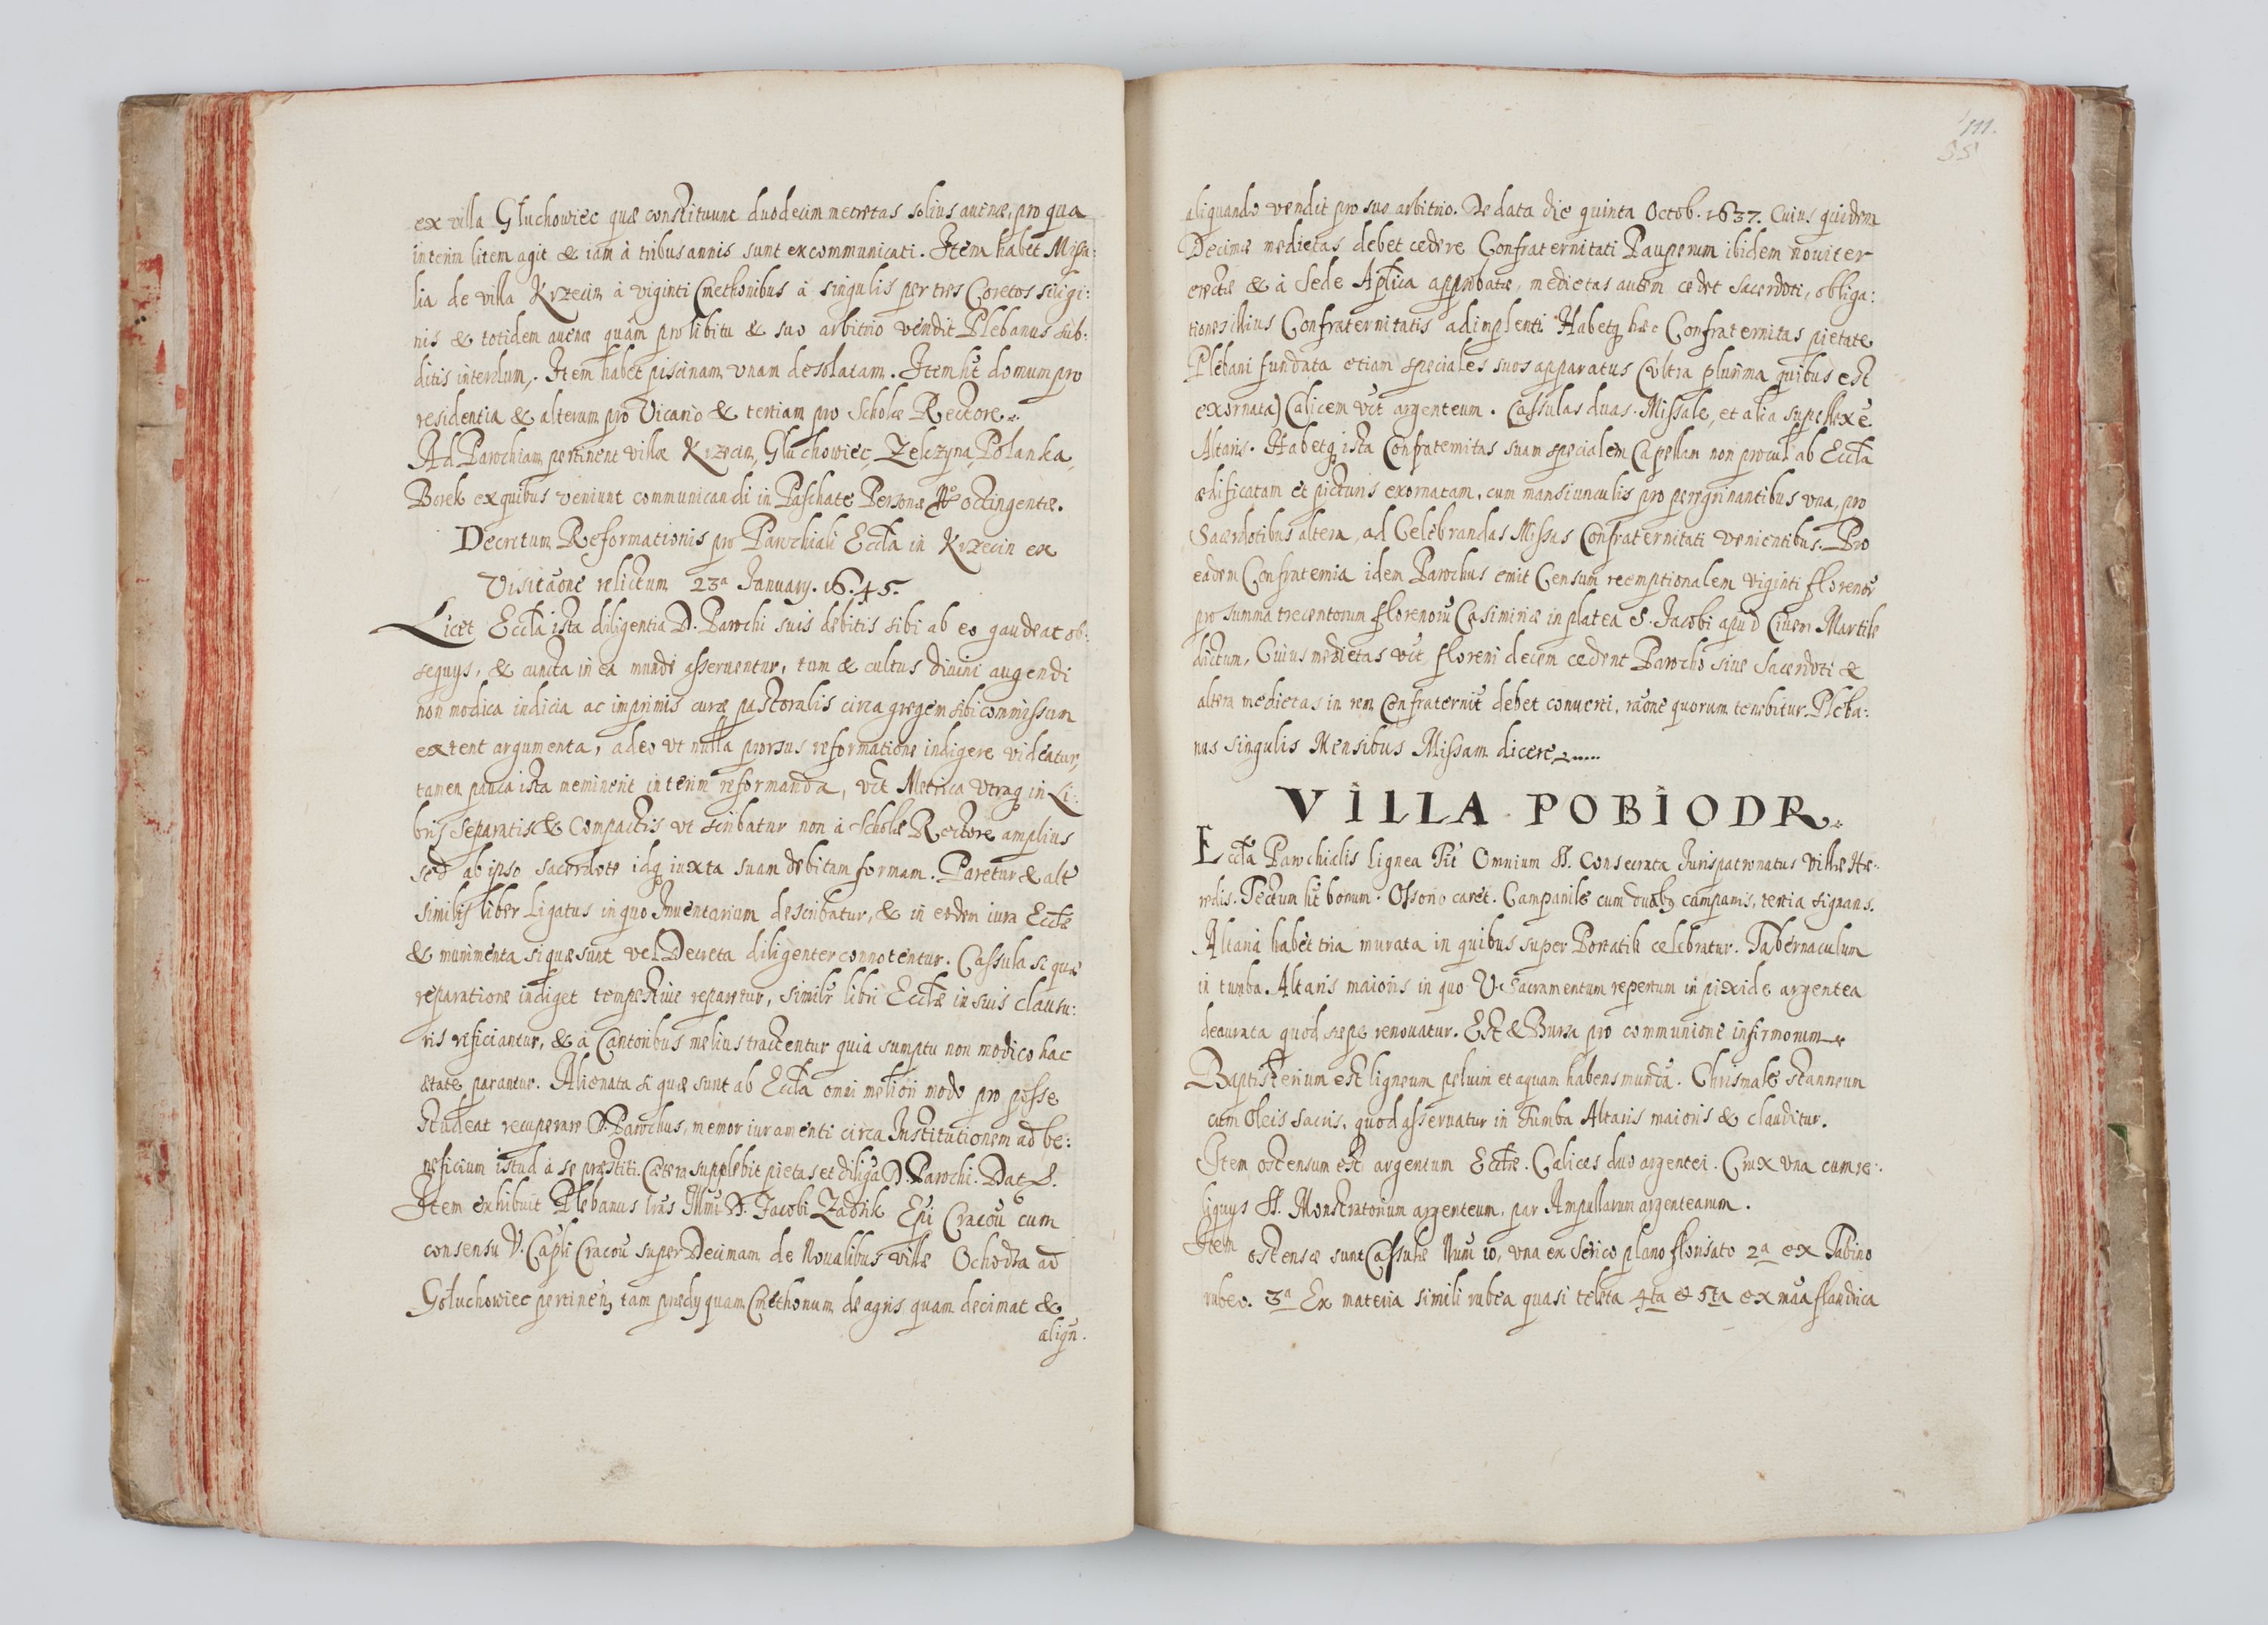 ex villa Głuchowiec quæ constituunt duodecim metretas solius auenæ, pro qua
interim litem agit & iam à tribus annis sunt excommunicati. Item habet Missa:
lia de villa Krzecin à viginti Cmethonibus à singulis per tres Coretos siligi:
nis & totidem auenæ quàm pro libitu & suo arbitrio vendit Plebanus sub:
ditis interdum. Item habet piscinam vnam desolatam. Item ht domum pro
residentia & alteram pro Vicario & tertiam pro Scholæ Rectore.
Ad Parochiam pertinent villæ Krzecin, Głuchowiec, Zelczyna, Polanka,
Borek ex quibus veniunt communicandi in Paschate Personæ No octingentæ.
Decretum Reformationis pro Parochiali Eccla in Krzecin ex
Visitaone relictum 23a January. 1645.
Licet Eccla ista diligentia D. Parochi suis debitis sibi ab eo gaudeat ob:
sequys, & cuncta in ea munde asseruentur, tum & cultus diuini augendi
non modica indicia ac imprimis curæ pastoralis circa gregem sibi commissum
extent argumenta, adeo vt nulla prorsus reformatione indigere videatur,
tamen pauca ista meminerit interim reformanda, vt Metrica vtraq in Li:
bris separatis & compactis vt scribatur non à Scholæ Rectore amplius
sed ab ipso sacerdote idq iuxta suam debitam formam. Paretur & alt
similis liber ligatus in quo Inuentarium describatur, & in eodem iura Ecclæ
& munimenta si quæ sunt vel Decreta diligenter connotentur. Cassula si quæ
reparatione indiget tempestiue reparetur, similr libri Ecclæ in suis clausu:
ris reficiantur, & à Cantoribus melius tractentur quia sumptu non modico hac
ætate parantur. Alienata si quæ sunt ab Eccla omni meliori modo pro posse
studeat recuperare D. Parochus, memor iuramenti circa Institutionem ad be:
neficium istud à se præstiti. Cætera supplebit pietas et diliga D. Parochi. Dat S.
Item exhibuit Plebanus lras Illmi D. Jacobi Zadzik Epi Cracou cum
consensu V. Capli Cracou super Decimam de Noualibus villæ Ochodza ad
Gołuchowiec pertinen, tam prædy quam Cmethonum de agris quam decimat &
aliqn.
111.
55
aliquando vendit pro suo arbitrio. De data die quinta Octob. 1637. Cuius quidem
Decimæ medietas debet cedere Confraternitati Pauperum ibidem nouiter
erectæ & à Sede Aplica approbatæ, medietas autem cedet Sacerdoti, obliga:
tiones illius Confraternitatis adimplenti. Habetq hæc Confraternitas pietate
Plebani fundata etiam speciales suos apparatus (vltra plurima quibus est
exornata) Calicem vct argenteum. Cassulas duas. Missale, et alia supellex e.
Altaris. Habetq ista Confraternitas suam specialem Capellam non procul ab Eccla
ædificatam et picturis exornatam, cum mansiunculis pro peregrinantibus vna, pro
Sacerdotibus altera, ad Celebrandas Missas Confraternitati venientibus. Pro
eadem Confraternia idem Parochus emit Censum reemptionalem viginti florenor
pro summa trecentorum florenoru Casimiriæ in platea S. Jacobi apud Ciuem Martike
dictum. Cuius medietas vct floreni decem cedent Parocho siue Sacerdoti &
altera medietas in rem Confraternit debet conuerti, raone quorum tenebitur Pleba:
nus singulis Mensibus Missam dicere
VILLA POBIODR.
Eccla Parochialis lignea Tit Omnium SS. Consecrata Jurispatronatus Villæ Hæ:
redis. Tectum ht bonum. Ossorio caret. Campanile cum duabq campanis, tertia signans.
Altaria habet tria murata in quibus super Portatile celebratur. Tabernaculum
in tumba Altaris maioris in quo V. Sacramentum repertum in pixide argentea
deaurata quod sæpe renouatur. Est & Bursa pro communione infirmorum
Baptisterium est ligneum peluim et aquam habens mundā. Chrismale stanneum
cum Oleis sacris, quod asseruatur in Tumba Altaris maioris & clauditur.
Item ostensum est argentum Ecclæ. Calices duo argentei. Crux vna cum re:
liquys SS. Monstratorium argenteum, par Ampullarum argentearum.
Item ostensæ sunt Cassulæ Num 10, vna ex Serico plano florisato 2a ex Tabino
rubeo. 3a Ex materia simili rubea quasi teleta 4ta & 5ta ex maa flandrica